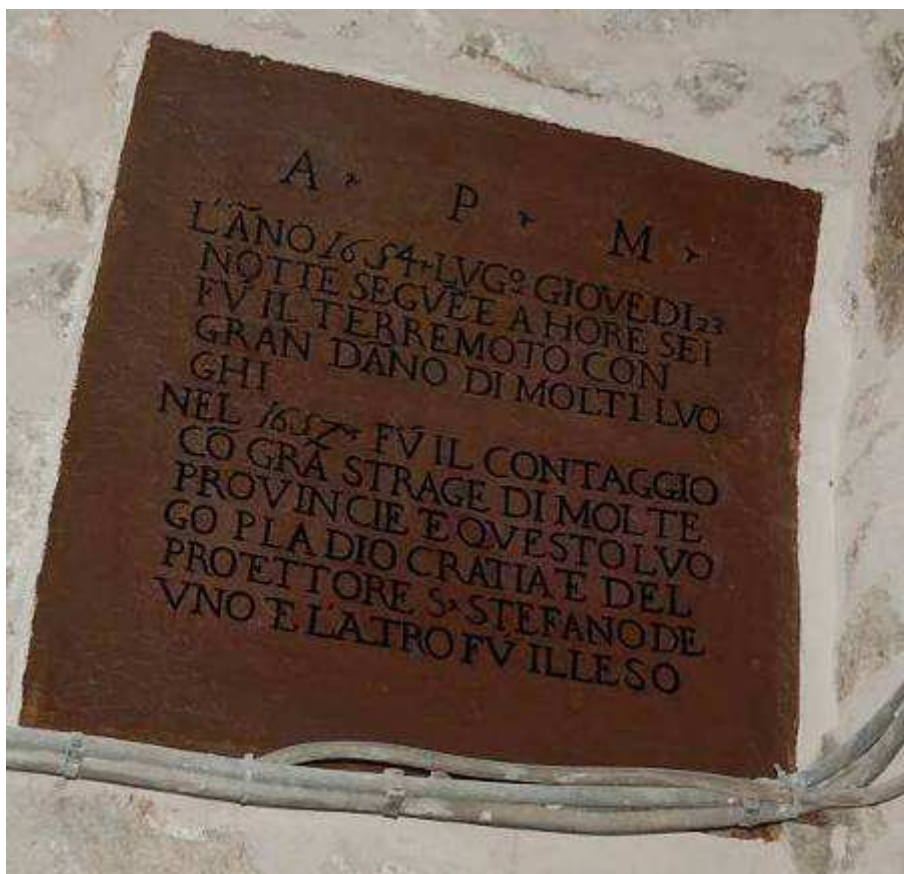 A · P · M ·
L'AÑO 1654 · LVGº GIOVEDI 23
NOTTE SEGVĒE A HORE SEI
FV́ IL TERREMOTO CON
GRAN DANO DI MOLTI LVO
GHI
NEL 1657 · FV́ IL CONTAGGIO
CŌ GRĀ STRAGE DI MOLTE
PROVINCIE E QVESTO LVO
GO P LA DIO CRATIA E DEL
PROTETTORE S · STEFANO DE
VNO E L'ATRO FV ILLESO